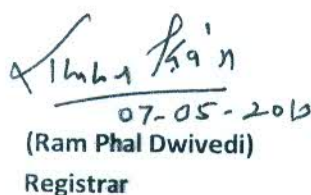 07-05-2010
(Ram Phal Dwivedi)
Registrar